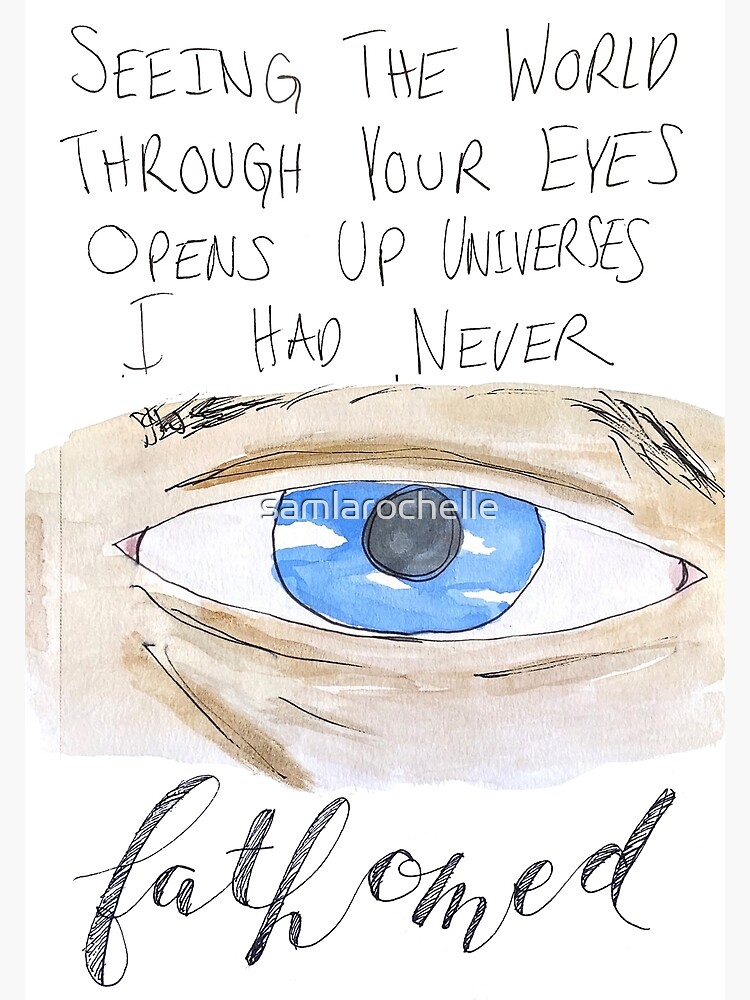 SEEING THE WORLD
THROUGH YOUR EYES
OPENS UP UNIVERSES
I HAD NEVER
samlarochelle
fathomed